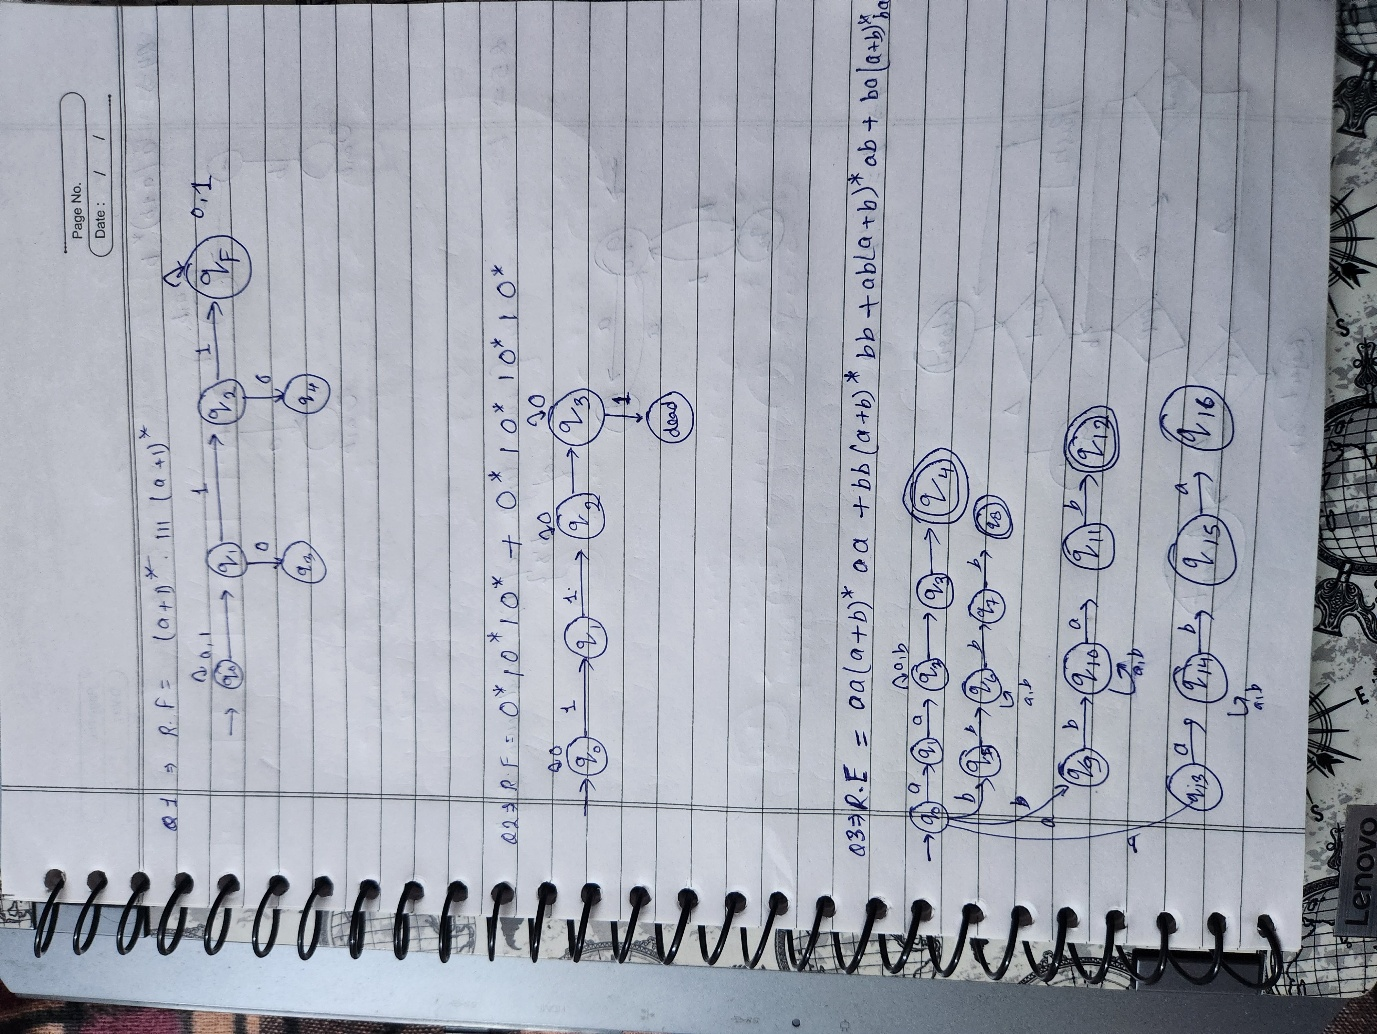 Page No.
Date: / /
Q1⇒ R.F = (a+1)*. 111 (a+1)*
→ q0 a,1 → q1 1 → q2 1 → qF 0,1
0 0
q3 q4
Q2⇒ R.F = 0*10*10* + 0*10*10*10*
0 0 0
→ q0 1 → q1 1 → q2 → q3
1
dead
Q3⇒ R.E = aa(a+b)* aa + bb(a+b)* bb + ab(a+b)* ab + ba(a+b)* ba
a,b
→ q0 a → q1 a → q2 → q3 → q4
b q5 b → q6 b → q7 b → q8
a,b
b
a q9 b → q10 a → q11 b → q12
a,b
a q13 a → q14 b → q15 a → q16
a,b
Lenovo